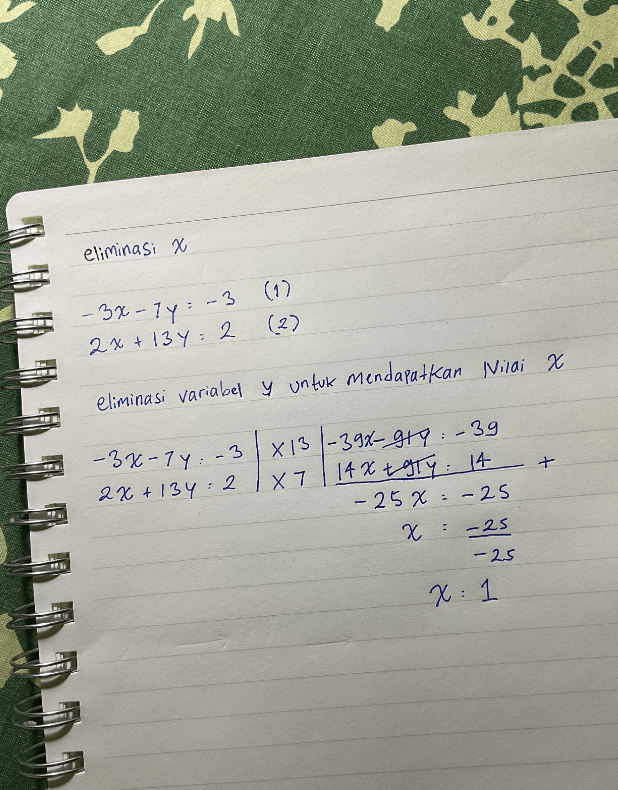 eliminasi x
-3x - 7y = -3 (1)
2x + 13y = 2 (2)
eliminasi variabel y untuk mendapatkan Nilai x
-3x - 7y = -3 | x 13 | -39x - 91y = -39
2x + 13y = 2 | x 7 | 14x + 91y = 14 +
-25x = -25
x = -25
-25
x = 1